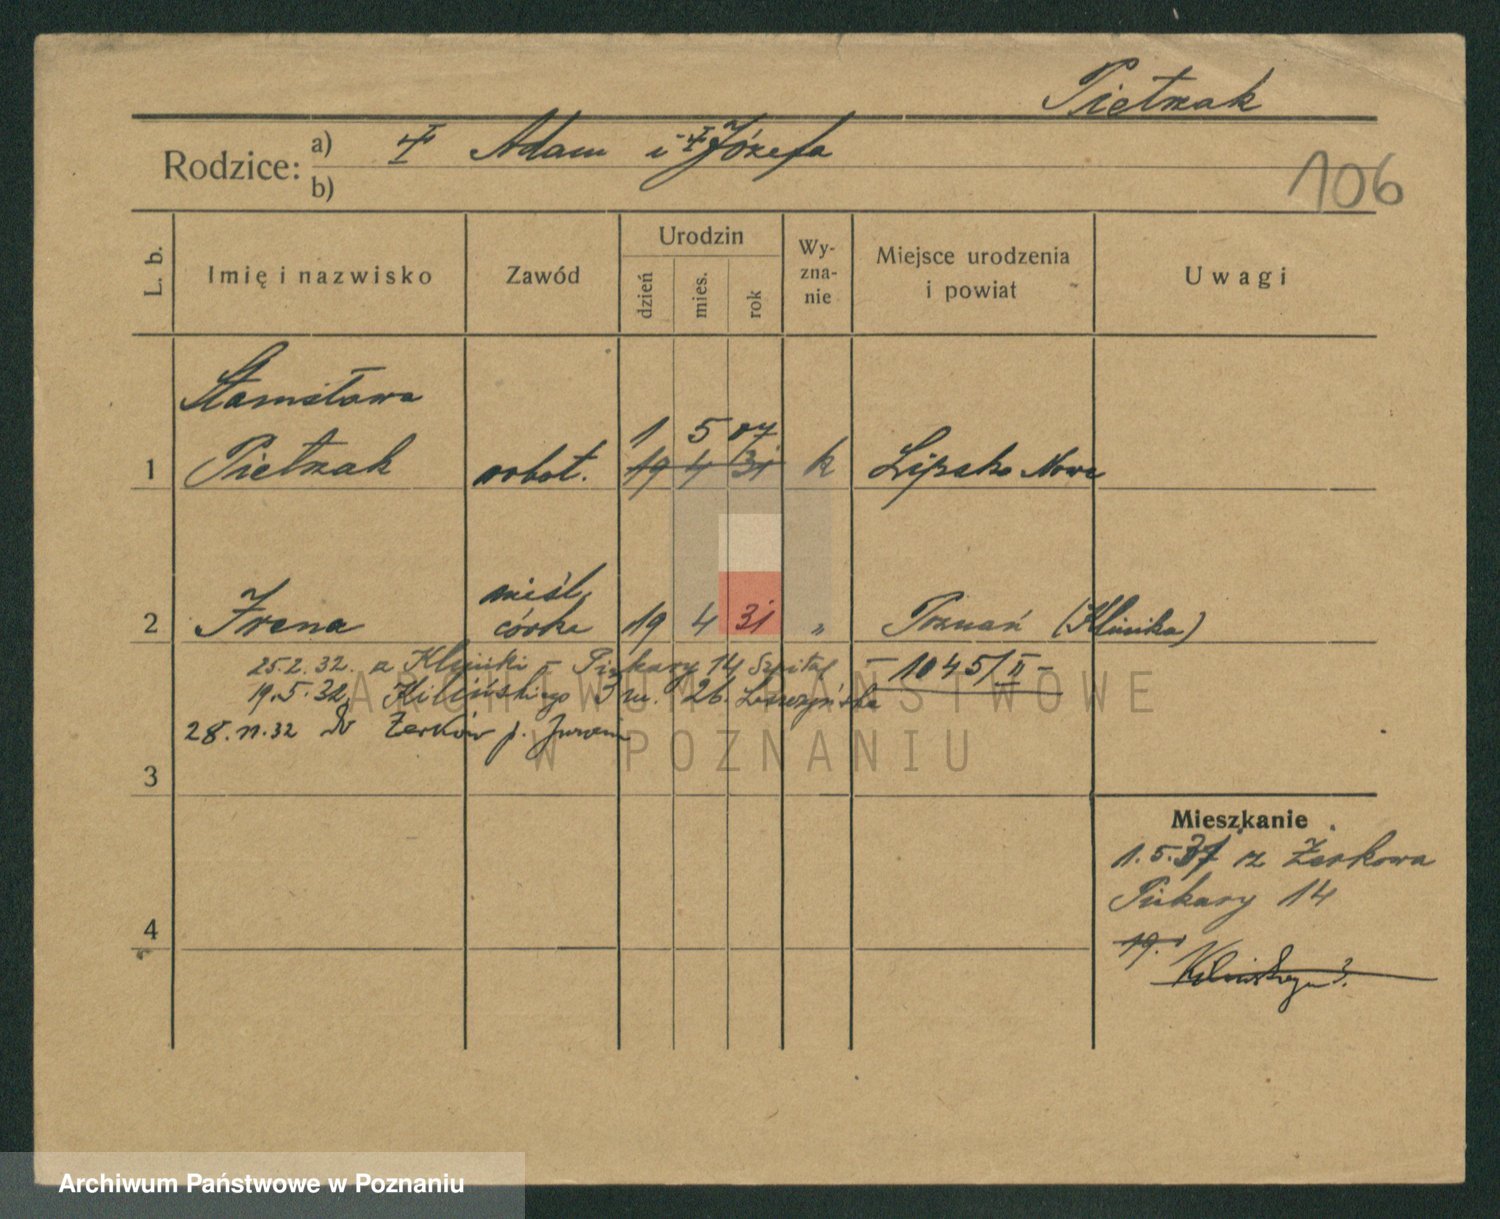 Pietrzak
Rodzice: a) Adam i Józefa
b)
106
L. b.
Imię i nazwisko
Zawód
Urodzin
dzień
mies.
rok
Wy-
zna-
nie
Miejsce urodzenia
i powiat
Uwagi
Stanisława
1 5 07
1 Pietrzak robot. 19 4 31 k
nieśl.
2 Irena córka 19 4 31 " Poznań (Klinika)
25.2.32. z Kliniki – Piekary 14 Szpital – 1045/II –
19.5.32. Kilińskiego 3 26.
28.11.32 Żerków p.
3
Mieszkanie
1.5.37 z Żerkowa
4 Piekary 14
19.
Kilińskiego 3.
ARCHIWUM PAŃSTWOWE
W POZNANIU
Archiwum Państwowe w Poznaniu